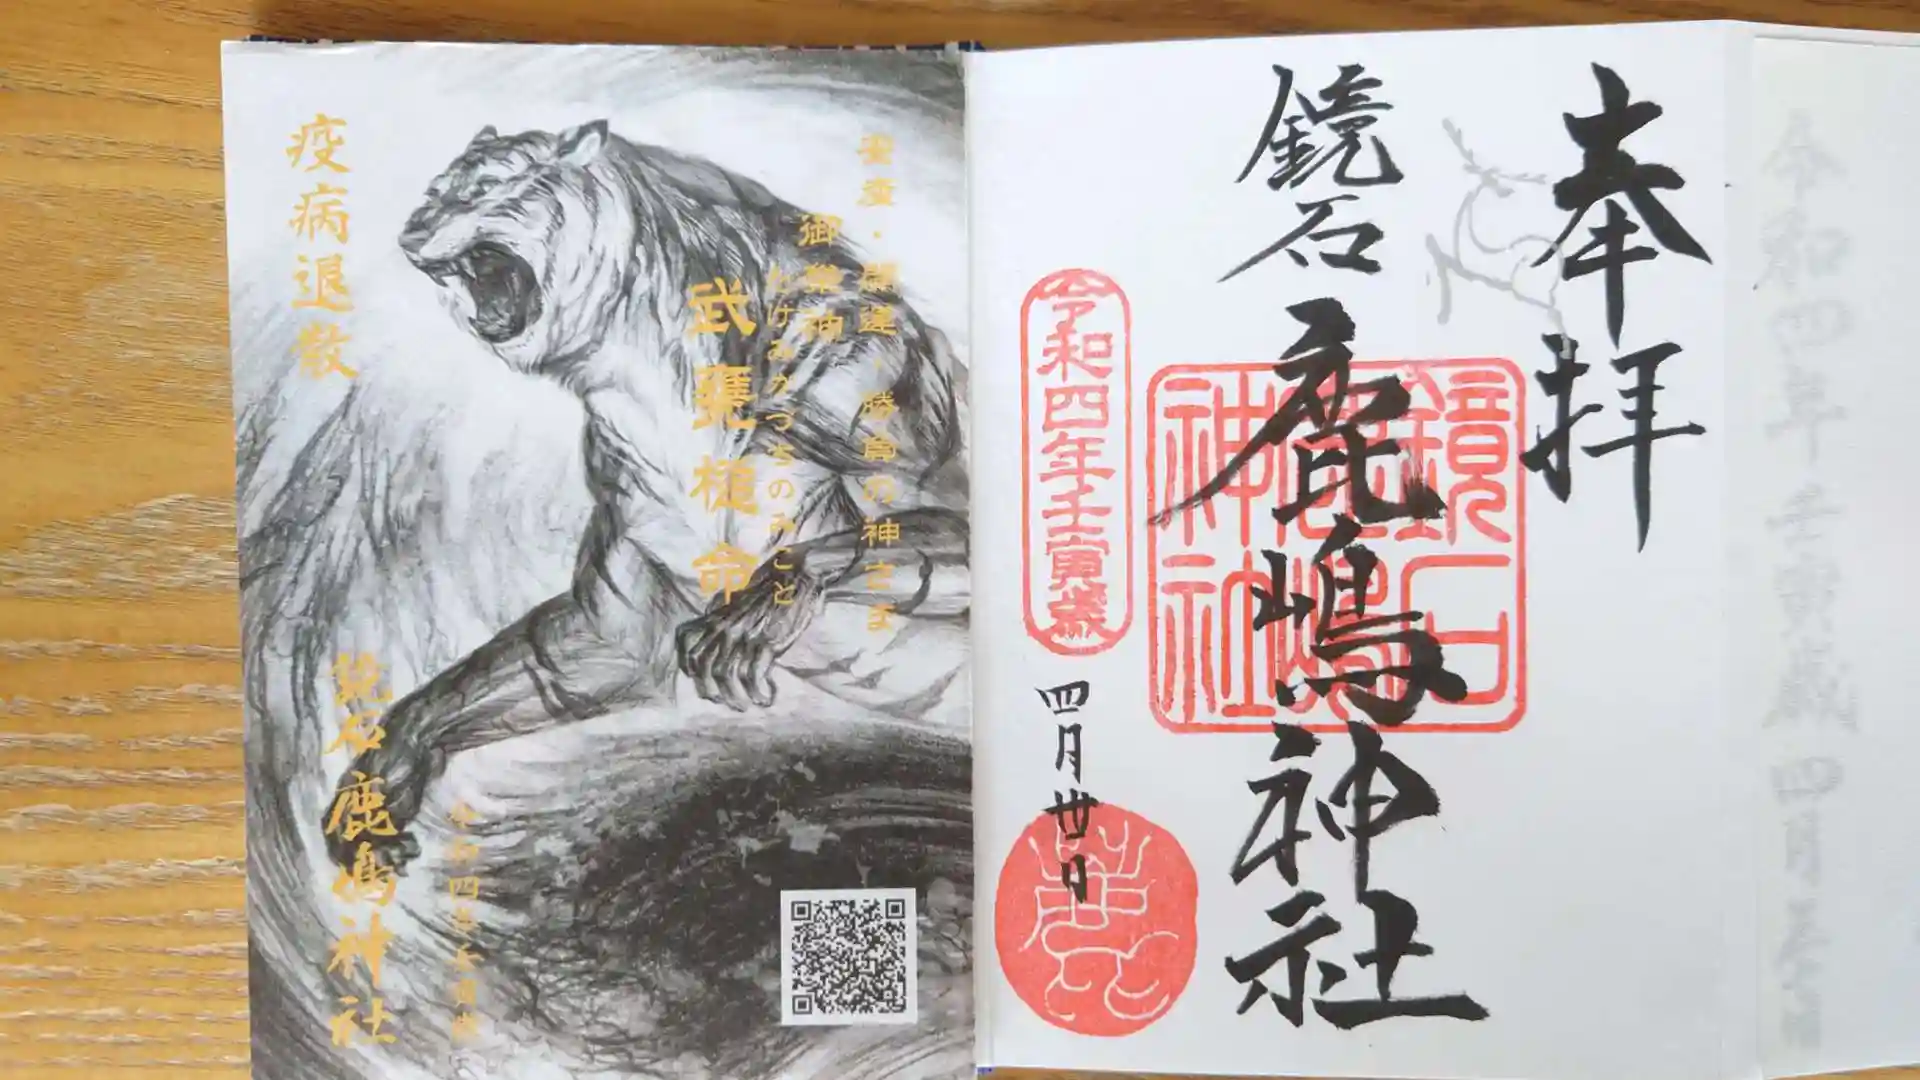 奉拝
鏡石
鹿嶋神社
鏡石
鹿嶋
神社
令和四年壬寅歳
四月廿日
安産・開運・勝負の神さま
御祭神
たけみかづちのみこと
武甕槌命
疫病退散
令和四年壬寅歳
鏡石鹿嶋神社